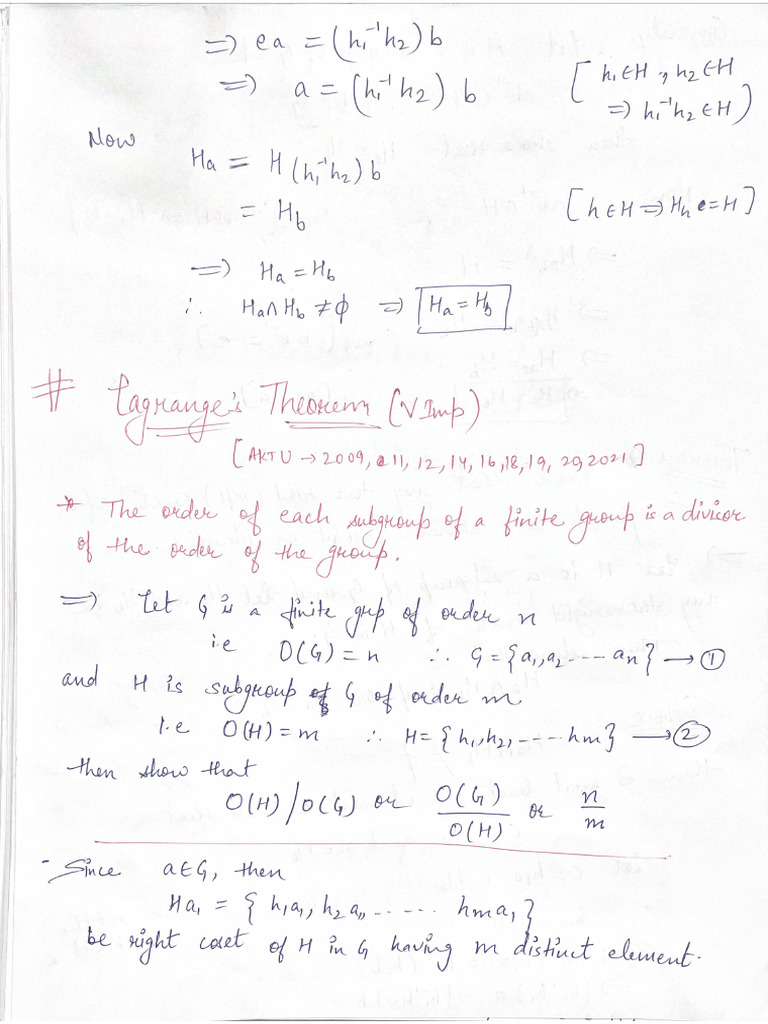 ⇒ ea = (h₁⁻¹h₂) b
⇒ a = (h₁⁻¹h₂) b [h₁∈H, h₂∈H
⇒ h₁⁻¹h₂∈H)
Now
Ha = H(h₁⁻¹h₂)b
= Hb [h∈H ⇒ Hh = H]
⇒ Ha = Hb
∴ Ha∩Hb ≠ ϕ ⇒ Ha = Hb
# Lagrange's Theorem (V Imp)
[AKTU → 2009, 11, 12, 14, 16, 18, 19, 20, 2021]
* The order of each subgroup of a finite group is a divisor
of the order of the group.
⇒ Let G is a finite grup of order n
i.e O(G) = n ∴ G = {a₁, a₂ ---- an} → ①
and H is subgroup of G of order m
i.e O(H) = m ∴ H = {h₁, h₂, ----- hm} → ②
then show that
O(H)/O(G) or O(G)/O(H) or n/m
- Since a∈G, then
Ha₁ = {h₁a₁, h₂a₁, ------ hma₁}
be right coset of H in G having m distinct element.